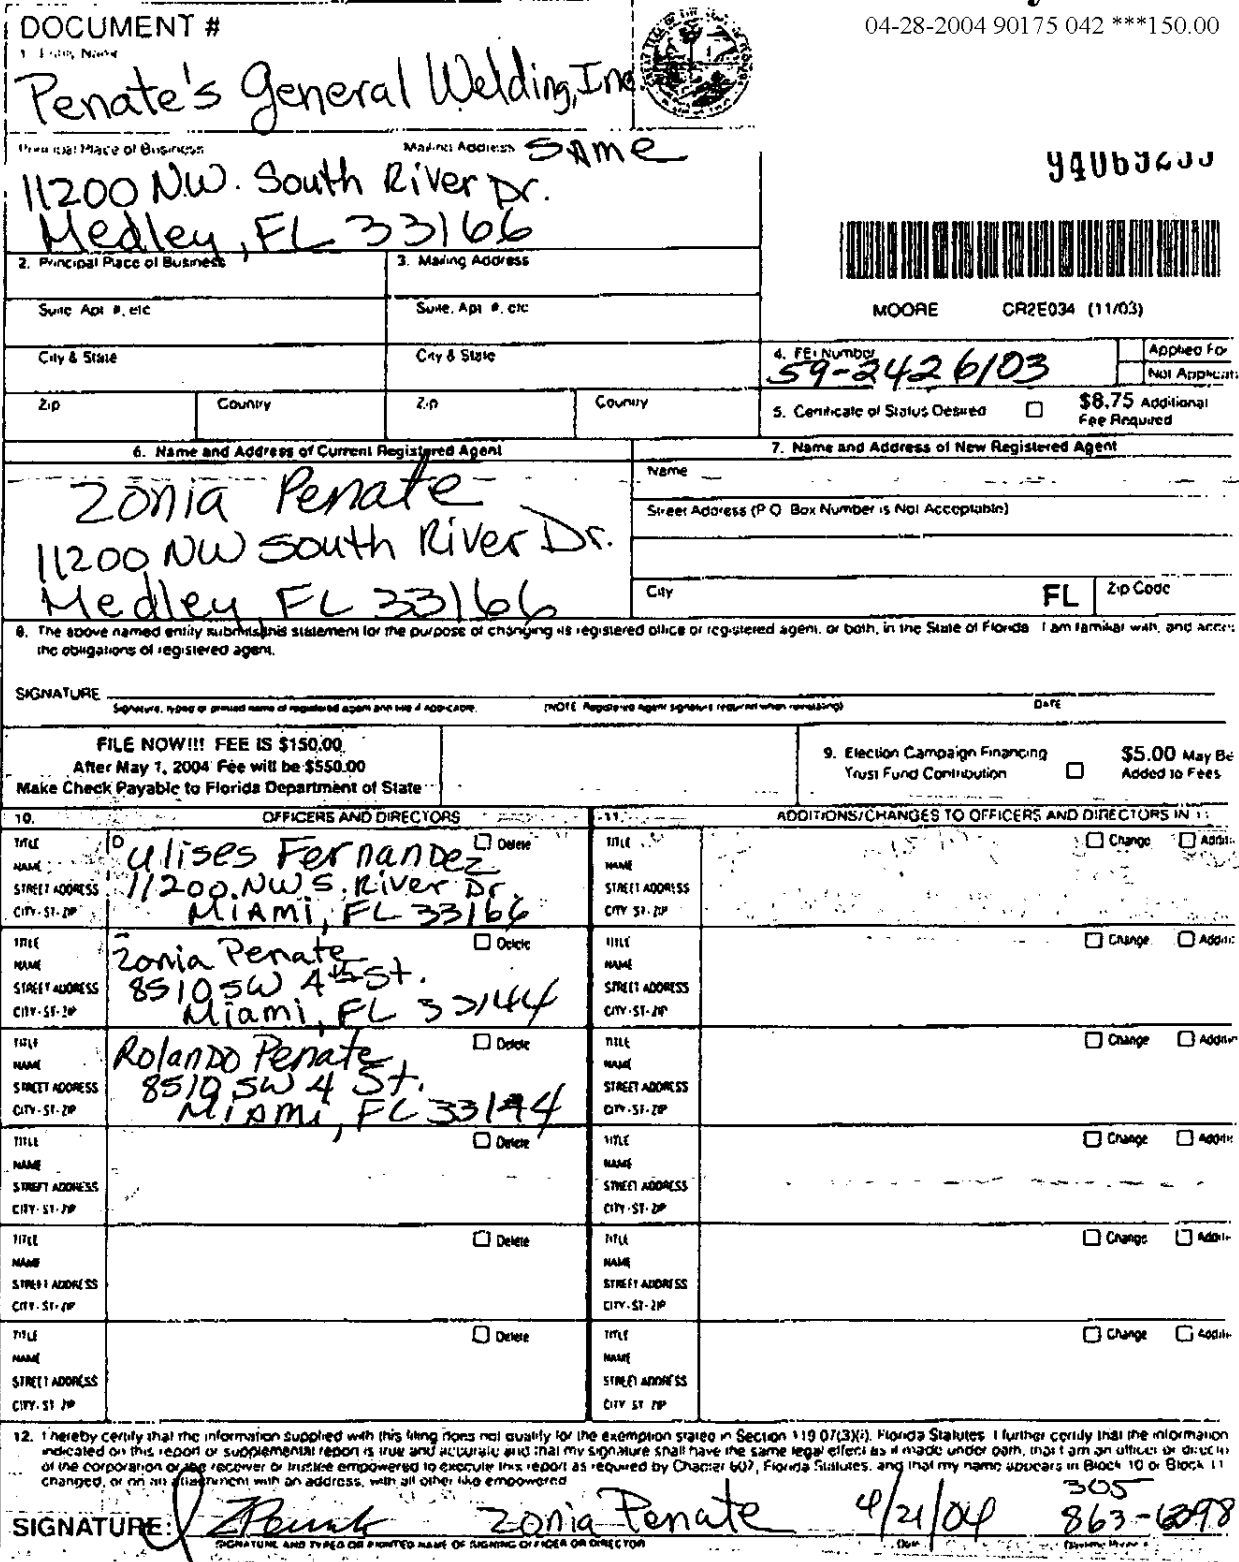 04-28-2004 90175 042 ***150.00
DOCUMENT #
1. Entity Name
Penate's General Welding, Inc.
Principal Place of Business
Mailing Address SAME
11200 N.W. South River Dr.
Medley, FL 33166
2. Principal Place of Business
3. Mailing Address
Suite, Apt. #, etc
Suite, Apt. #, etc
MOORE CR2E034 (11/03)
City & State
City & State
4. FEI Number
59-2426103
Applied For
Not Applicat
Zip
Country
Zip
Country
5. Certificate of Status Desired
$8.75 Additional
Fee Required
6. Name and Address of Current Registered Agent
7. Name and Address of New Registered Agent
Zonia Penate
11200 NW South River Dr.
Medley, FL 33166
Name
Street Address (P.O. Box Number is Not Acceptable)
City
FL
Zip Code
8. The above named entity submits this statement for the purpose of changing its registered office or registered agent, or both, in the State of Florida. I am familiar with, and accep
the obligations of registered agent.
SIGNATURE
Signature, typed or printed name of registered agent and title if applicable.
(NOTE: Registered Agent signature required when reinstating)
DATE
FILE NOW!!! FEE IS $150.00
After May 1, 2004 Fee will be $550.00
Make Check Payable to Florida Department of State
9. Election Campaign Financing
Trust Fund Contribution
$5.00 May Be
Added to Fees
10. OFFICERS AND DIRECTORS
11. ADDITIONS/CHANGES TO OFFICERS AND DIRECTORS IN 11
TITLE D Delete
NAME Ulises Fernandez
STREET ADDRESS 11200 NW S. River Dr.
CITY-ST-ZIP Miami, FL 33166
TITLE Change Additi
NAME
STREET ADDRESS
CITY-ST-ZIP
TITLE Delete
NAME Zonia Penate
STREET ADDRESS 8510 SW 4th St.
CITY-ST-ZIP Miami, FL 33144
TITLE Change Additi
NAME
STREET ADDRESS
CITY-ST-ZIP
TITLE Delete
NAME Rolando Penate
STREET ADDRESS 8510 SW 4 St.
CITY-ST-ZIP Miami, FL 33144
TITLE Change Additi
NAME
STREET ADDRESS
CITY-ST-ZIP
TITLE Delete
NAME
STREET ADDRESS
CITY-ST-ZIP
TITLE Change Additi
NAME
STREET ADDRESS
CITY-ST-ZIP
TITLE Delete
NAME
STREET ADDRESS
CITY-ST-ZIP
TITLE Change Additi
NAME
STREET ADDRESS
CITY-ST-ZIP
TITLE Delete
NAME
STREET ADDRESS
CITY-ST-ZIP
TITLE Change Additi
NAME
STREET ADDRESS
CITY-ST-ZIP
12. I hereby certify that the information supplied with this filing does not qualify for the exemption stated in Section 119.07(3)(i), Florida Statutes. I further certify that the information
indicated on this report or supplemental report is true and accurate and that my signature shall have the same legal effect as if made under oath, that I am an officer or directo
of the corporation or the receiver or trustee empowered to execute this report as required by Chapter 607, Florida Statutes, and that my name appears in Block 10 or Block 11
changed, or on an attachment with an address, with all other like empowered
SIGNATURE: Zonia Penate 4/21/04 305 863-6398
SIGNATURE AND TYPED OR PRINTED NAME OF SIGNING OFFICER OR DIRECTOR
Date
Daytime Phone #